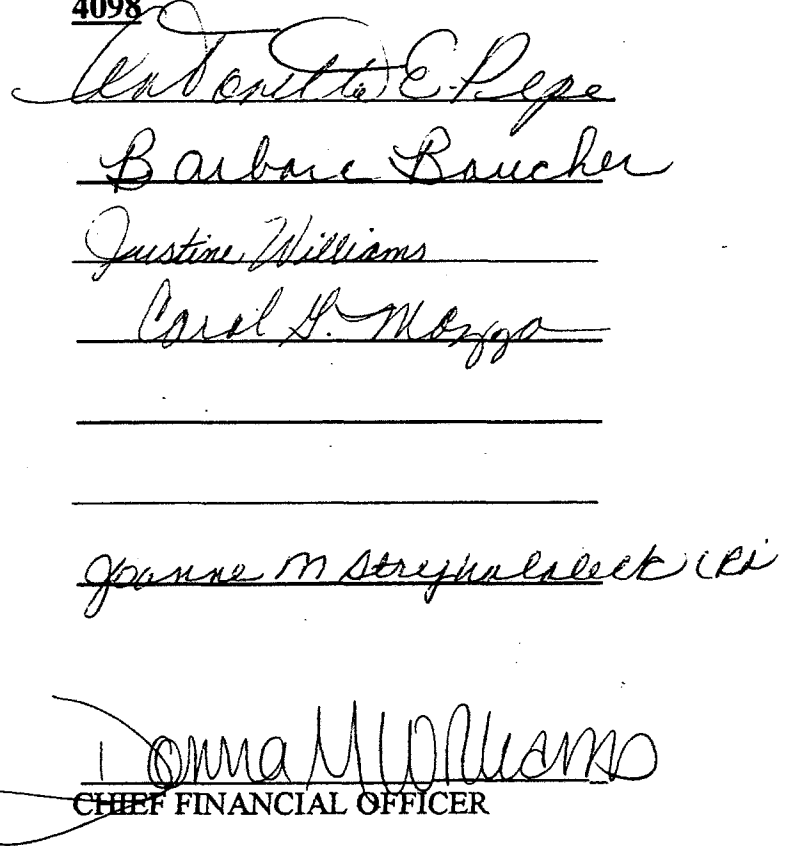 4098
Antonette E. Pepe
Barbara Boucher
Justine Williams
Carol G. Mazza
Joanne M
Donna M Williams
CHIEF FINANCIAL OFFICER